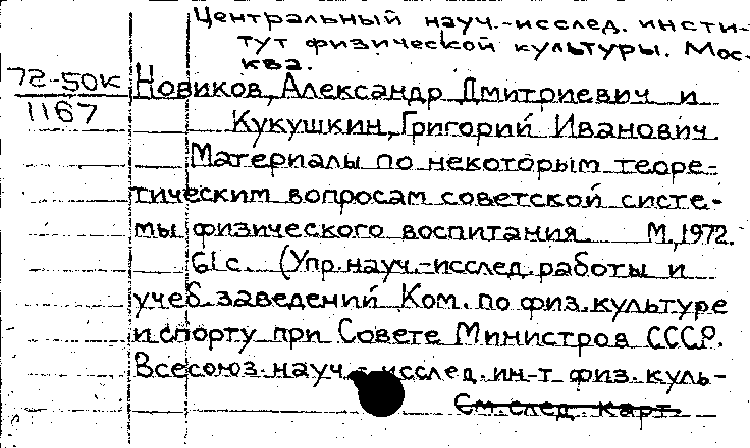 Центральный науч.-исслед. инсти-
тут физической культуры. Мос-
ква.
72-50к
1167
Новиков, Александр Дмитриевич и
Кукушкин, Григорий Иванович
Материалы по некоторым теоре-
тическим вопросам советской систе-
мы физического воспитания. М., 1972.
61 с. (Упр. науч.-исслед. работы и
учеб. заведений Ком. по физ. культуре
и спорту при Совете Министров СССР.
Всесоюз. науч.-исслед. ин-т физ. куль-
См. след. карт.